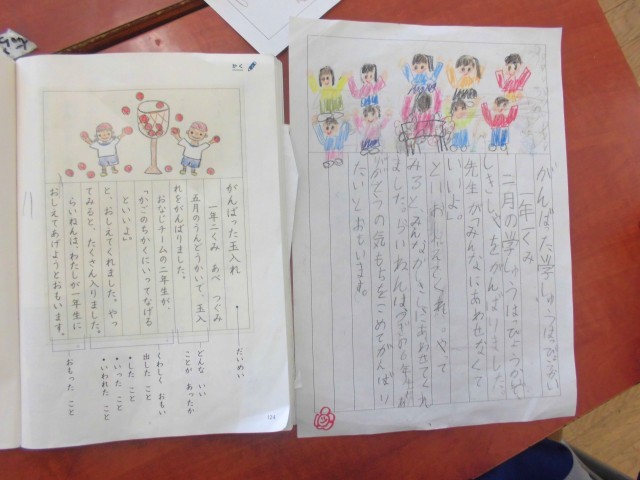 かく
がんばった玉入れ
一年二くみ あべ つぐみ
五月のうんどうかいで、玉入
れをがんばりました。
おなじチームの二年生が、
「かごのちかくにいってなげる
といいよ。」
と、おしえてくれました。やっ
てみると、たくさん入りました。
らいねんは、わたしが一年生に
おしえてあげようとおもいます。
だいめい
どんな いい
ことが あったか
くわしく おもい
出した こと
・した こと
・いった こと
・いわれた こと
おもった こと
がんばった学しゅうはっぴょうかい
一年一くみ
二月の学しゅうはっぴょうかい
しきしゃをがんばりました。
先生が「みんなにあわせなくて
いいよ。」
とおしえてくれ。やって
みるとみんなが あわせてくれ
ました。らいねんは
の気もちをこめてがんばり
たいとおもいます。